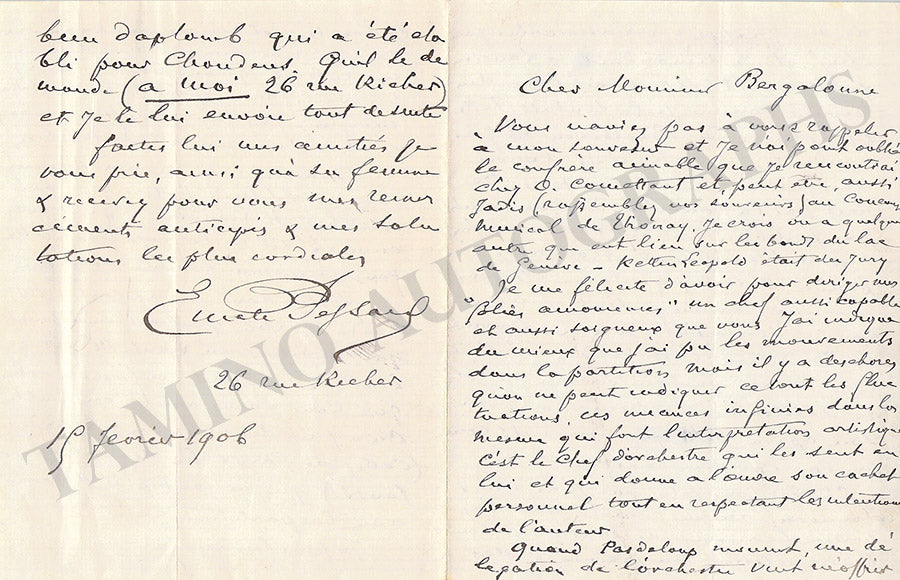 Cher Monsieur Bergalonne
Vous n'aviez pas à vous rappeler
à mon souvenir et Je n'ai point oublié
le confrère aimable que Je rencontrai
chez O. Comettant et peut être, aussi
Jadis (rassemblez vos souvenirs) au Concours
musical de Thonay. Je crois ou a quelque
autre qui eut lieu sur les bords du lac
de Genève – Ketten Leopold était du Jury
Je me félicite d'avoir pour diriger mes
"folies amoureuses" un chef aussi capable
et aussi soigneux que vous J'ai indiqué
du mieux que j'ai pu les mouvements
dans la partition mais il y a des choses
qu'on ne peut indiquer ce sont les fluc
tuations, ces nuances infinies dans la
mesure qui font l'interprétation artistique
c'est le Chef d'orchestre qui les sent en
lui et qui donne à l'œuvre son cachet
personnel tout en respectant les intentions
de l'auteur
Quand Pasdeloup mourut, une dé
légation de l'orchestre vint m'offrir
bien d'aplomb qui a été éta
bli pour Choudens. Qu'il le de
mande (a moi 26 rue Richer)
et Je le lui envoie tout de suite
faites lui mes amitiés Je
vous prie, ainsi qu'à sa femme
& recevez pour vous mes remer
ciements anticipés & mes salu
tations les plus cordiales
Emile Pessard
26 rue Richer
15 fevrier 1906
TAMINO AUTOGRAPHS